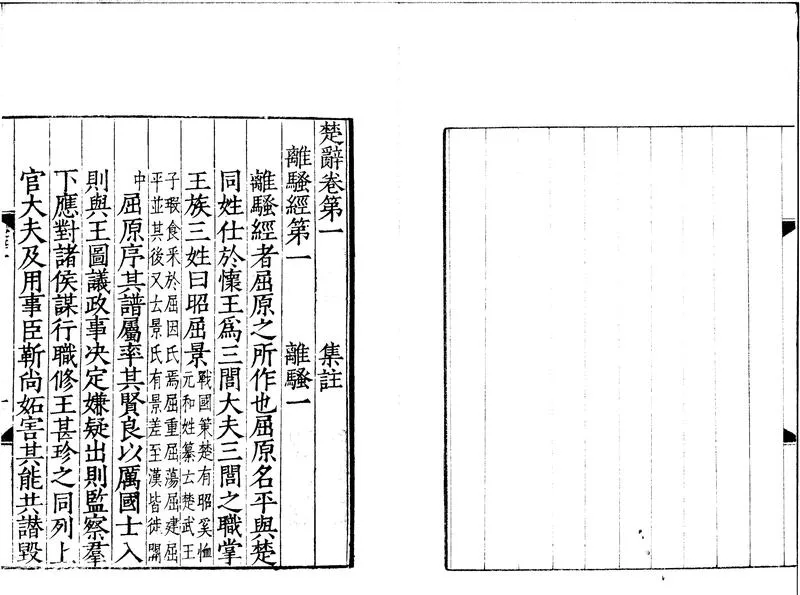 楚辭卷第一 集註
離騷經第一 離騷一
離騷經者屈原之所作也屈原名平與楚
同姓仕於懷王爲三閭大夫三閭之職掌
王族三姓曰昭屈景戰國策楚有昭奚恤
元和姓纂云楚武王
子瑕食采於屈因氏焉屈重屈蕩屈建屈
平並其後又云景氏有景差至漢皆徙關
中
屈原序其譜屬率其賢良以厲國士入
則與王圖議政事决定嫌疑出則監察羣
下應對諸侯謀行職修王甚珍之同列上
官大夫及用事臣靳尚妬害其能共譖毀